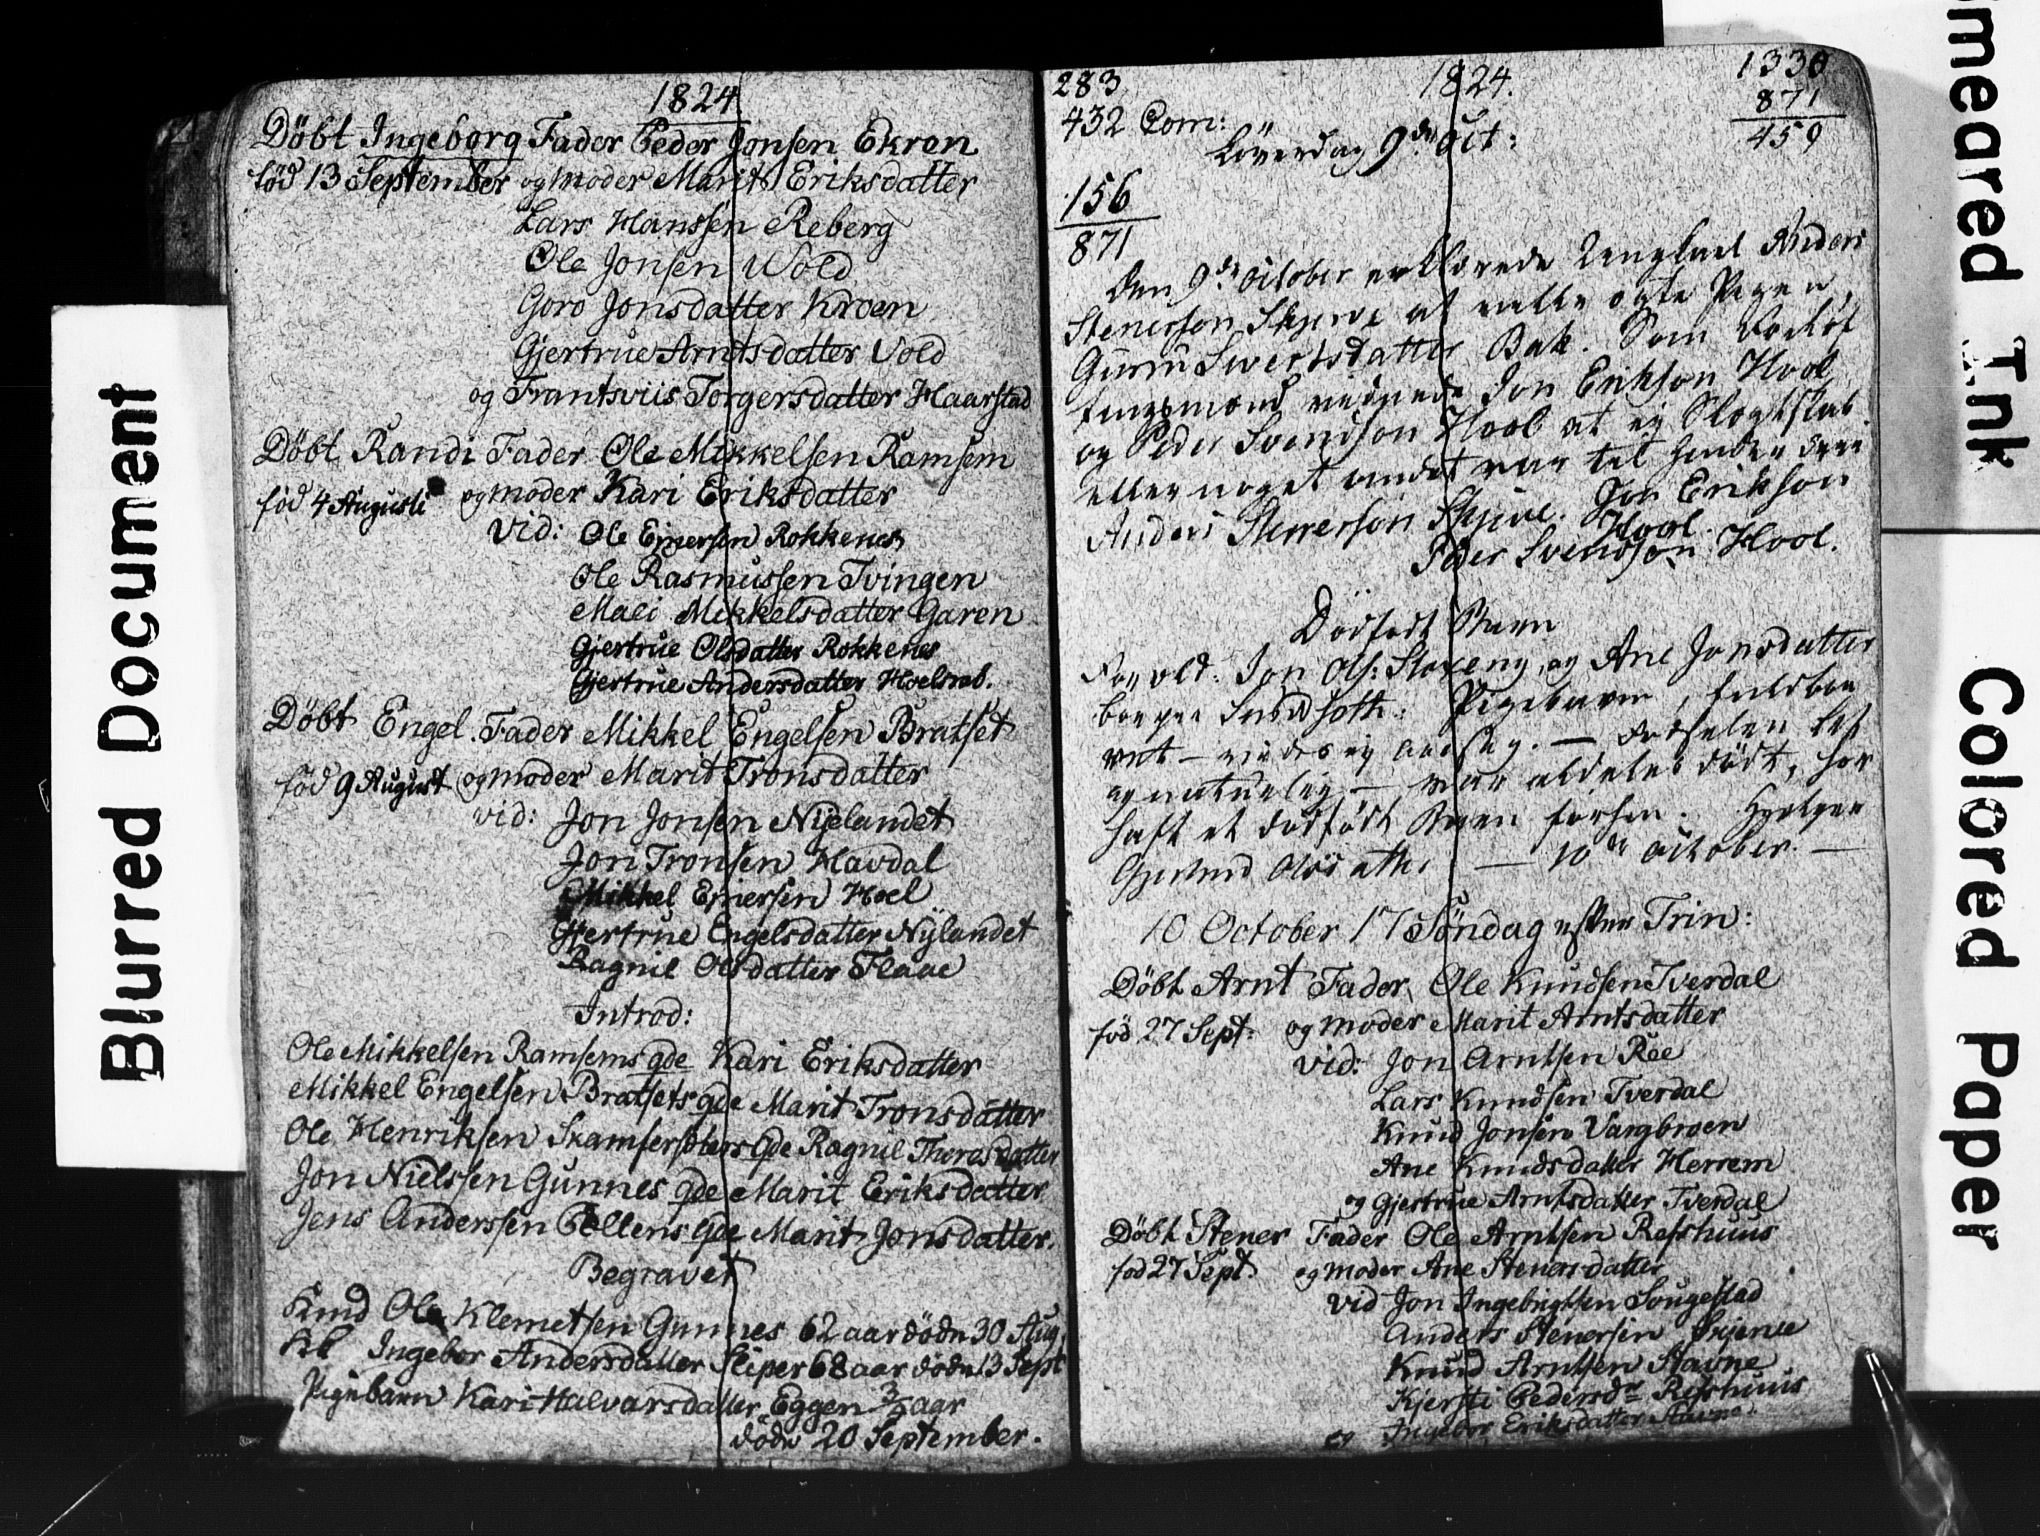 Blurred Document
1824
Döbt Ingeborg Fader Peder Jonsen Ekren
föd 13 September og moder Marit Eriksdatter
Lars Hanssen Reberg
Ole Jonsen Wold
Goro Jonsdatter Kroen
Gjertrue Arntsdatter Vold
og Frantsviis Torgersdatter Haarstad
Döbt Randi Fader Ole Mikkelsen Ramsem
föd 4 Augusti og moder Kari Eriksdatter
Vid: Ole Ejnersen Rokkenes
Ole Rasmussen Tvingen
Mali Mikkelsdatter Garen
Gjertrue Olsdatter Rokkenes
Gjertrue Andersdatter
Döbt Engel. Fader Mikkel Engelsen Bratset
föd 9 August og moder Marit Tronsdatter
vid: Jon Jonsen Nijelandet
Jon Tronsen Havdal
Mikkel Ejnersen Hoel
Gjertrue Engelsdatter Nÿlandet
Ragnil Olsdatter Flaae
Introd:
Ole Mikkelsen Ramsems qde Kari Eriksdatter
Mikkel Engelsen Bratsets qde Marit Tronsdatter
Ole Henriksen qde Ragnil Thoresdatter
Jon Nielssen Gunnes qde Marit Eriksdatter
Jens Anderssen qde Marit Jonsdatter.
Begravet
Knud Ole Klemetsen Gunnes 62 aar döde 30 Aug.
Ingebor Andersdatter Sliper 68 aar döde 13 Sept
Pigebarn Kari Halvarsdatter Eggen aar
döde 20 September.
283 1824. 1330
432 Com: 871
Löverdag 9de Oct: 459
156
871
Den 9de October erklærede Ungkarl Anders
Stenerson Skjerve at ville ægte Pigen
Guru Sivertsdatter Bak. Som Forlof
tingsmænd Jon Erikson Hool
og Peder Svendson Hool at ej Slægtskab
eller noget andet var til Hinder deri
Anders Stenerson Jon Erikson
Hool.
Peder Svendson Hool.
Dödfødt Barn
Foræld: Jon Ols: og Ane Jonsdatter
Pigebarn, fuldbaa
ret
og naturlig — var aldeles dödt, har
haft et dödfødt Barn förhen.
Gjertrud Olsdatt: — 10de October. —
10 October 17 Söndag efter Trin:
Döbt Arnt Fader Ole Knudsen Tverdal
föd 27 Sept: og moder Marit Arntsdatter
vid: Jon Arntsen Ree
Lars Knudsen Tverdal
Knud Jonsen Vargbroen
Ane Knudsdatter Herrem
og Gjertrue Arntsdatter Tverdal
Döbt Stener Fader Ole Arntsen Refshuus
föd 27 Sept og moder Ane Stenersdatter
vid Jon Ingebrigtsen Sougestad
Anders Stenersen
Knud Arntsen Stavne
Kjersti Pedersdr Refshuus
og Ingebor Eriksdatter Stavne.
Smeared Ink
Colored Paper